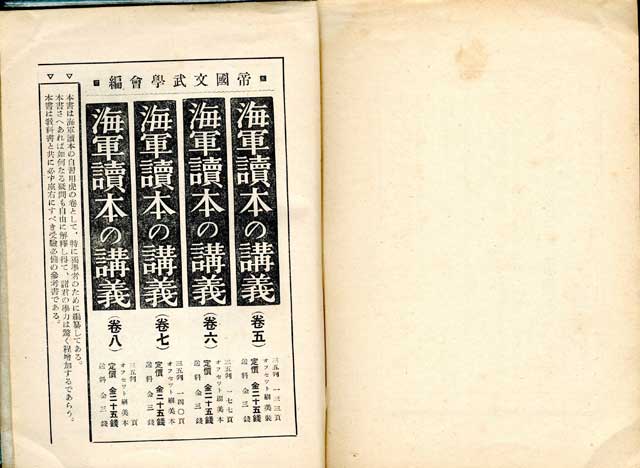 帝國文武學會編
海軍讀本の講義（卷五）
三五判 一三三頁
オフセット刷美裝
定價 金二十五錢
送料 金三錢
海軍讀本の講義（卷六）
三五判 一七七頁
オフセット刷美本
定價 金二十五錢
送料 金三錢
海軍讀本の講義（卷七）
三五判 一四〇頁
オフセット刷美本
定價 金二十五錢
送料 金三錢
海軍讀本の講義（卷八）
三五判 頁
オフセット刷美本
定價 金二十五錢
送料 金三錢
本書は海軍讀本の自習用虎の卷として、特に獨學者のために編纂してある。
本書さへあれば如何なる疑問も自由に解釋し得て、諸君の學力は驚く程增加するであらう。
本書は敎科書と共に必ず座右にすべき受驗必備の參考書である。